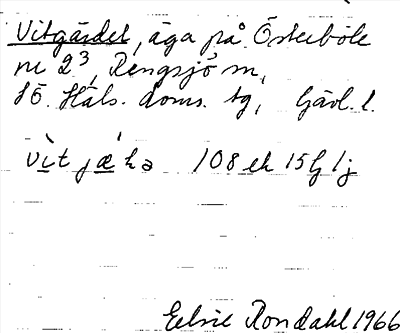 Vitgärdet, äga på Österböle
nr 2³, Rengsjö sn,
SÖ. Häls. doms. tg, Gävl. l.
vìt jæ̀ḷə 108 ek 15 G 1 j
Elsie Rondahl 1966